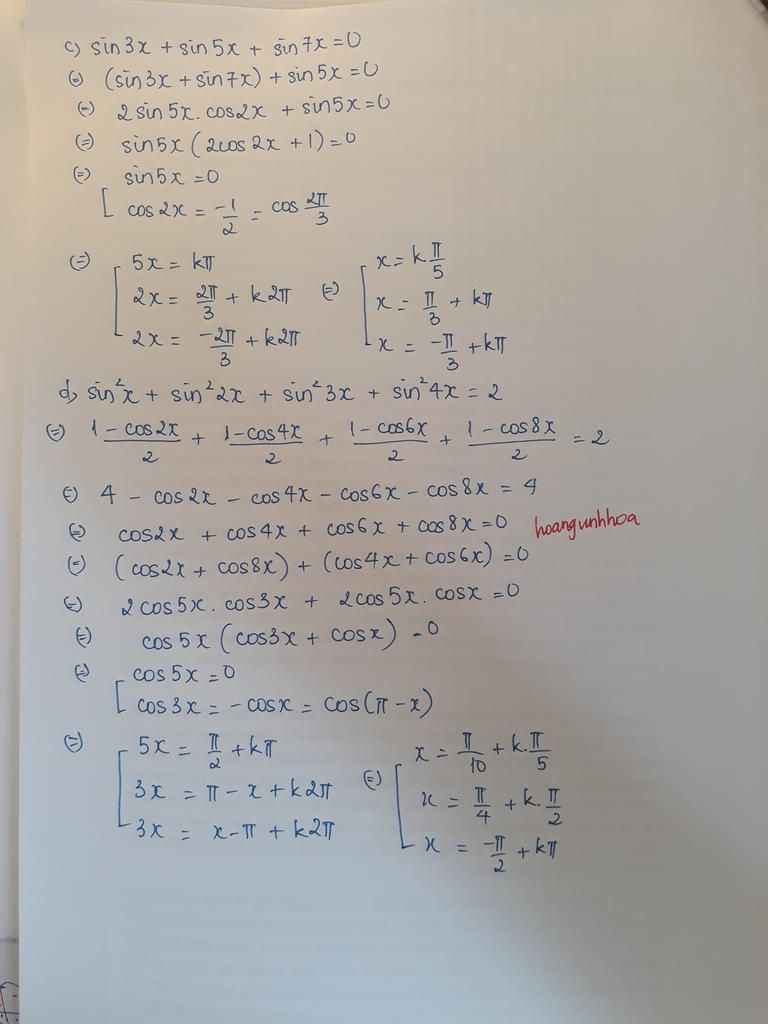 c) sin3x + sin5x + sin7x = 0
(=) (sin3x + sin7x) + sin5x = 0
(=) 2sin5x.cos2x + sin5x = 0
(=) sin5x(2cos2x + 1) = 0
(=) [ sin5x = 0
cos2x = -1/2 = cos 2π/3
(=) [ 5x = kπ (=) [ x = k π/5
2x = 2π/3 + k2π x = π/3 + kπ
2x = -2π/3 + k2π x = -π/3 + kπ
d, sin²x + sin²2x + sin²3x + sin²4x = 2
(=) 1-cos2x/2 + 1-cos4x/2 + 1-cos6x/2 + 1-cos8x/2 = 2
(=) 4 - cos2x - cos4x - cos6x - cos8x = 4
(=) cos2x + cos4x + cos6x + cos8x = 0 hoangunhhoa
(=) (cos2x + cos8x) + (cos4x + cos6x) = 0
(=) 2cos5x.cos3x + 2cos5x.cosx = 0
(=) cos5x(cos3x + cosx) = 0
(=) [ cos5x = 0
cos3x = -cosx = cos(π - x)
(=) [ 5x = π/2 + kπ (=) [ x = π/10 + k.π/5
3x = π - x + k2π x = π/4 + k.π/2
3x = x - π + k2π x = -π/2 + kπ